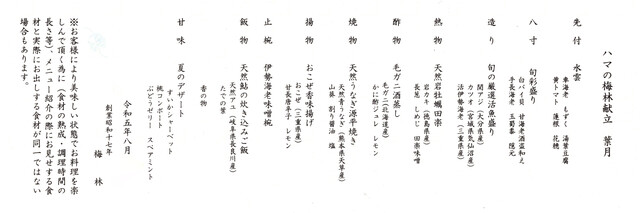 ハマの梅林献立　葉月
先付　水雲
車海老　もずく　湯葉豆腐
黄トマト　蓮根　花穂
八寸　旬彩盛り
白バイ貝　甘海老酒盗和え
手長海老　玉蜀黍　隠元
造り　旬の厳選活魚盛り
関アジ（大分県産）
カツオ（宮城県気仙沼産）
活伊勢海老（三重県産）
熱物　天然岩牡蠣田楽
岩カキ（徳島県産）
長茄　しめじ　田楽味噌
酢物　毛ガニ酒蒸し
毛ガニ（北海道産）
かに酢ジュレ　レモン
焼物　天然うなぎ源平焼き
天然青うなぎ（熊本県天草産）
山葵　割り醤油　塩
揚物　おこぜ香味揚げ
おこぜ（三重県産）
甘長唐辛子　レモン
止椀　伊勢海老味噌椀
飯物　天然鮎の炊き込みご飯
天然アユ（岐阜県長良川産）
たでの葉
香の物
甘味　夏のデザート
すいかシャーベット
桃コンポート
ぶどうゼリー　スペアミント
令和五年八月
創業昭和十七年
梅　林
※お客様により美味しい状態でお料理を楽
しんで頂く為に（食材の熟成・調理時間の
長さ等）、メニュー紹介の際にお見せする食
材と実際にお出しする食材が同一ではない
場合もあります。